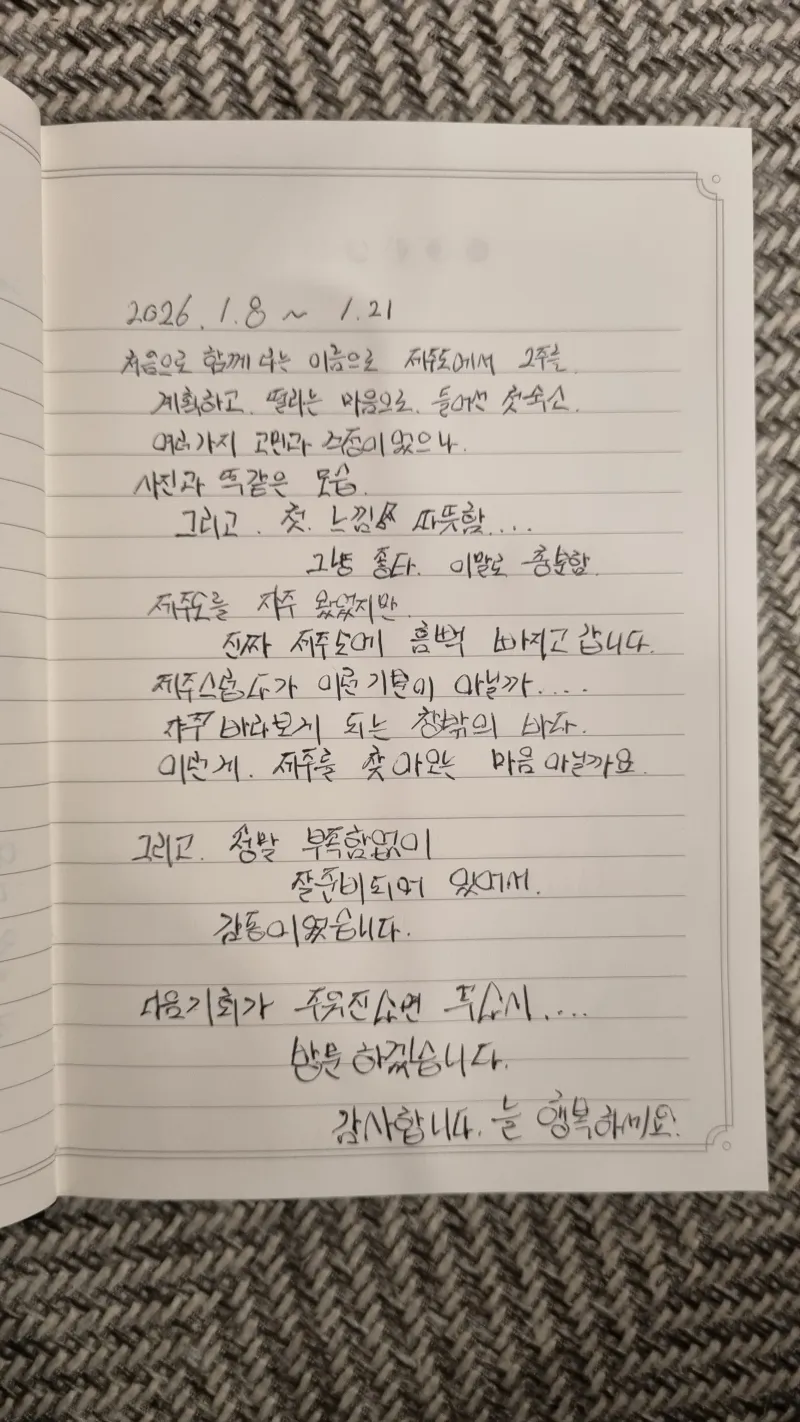 2026. 1. 8 ~ 1. 21
처음으로 함께 라는 이름으로 제주도에서 2주를.
계획하고. 떨리는 마음으로. 들어선 첫숙소.
여러가지 고민과 걱정이 있으나.
사진과 똑같은 모습.
그리고. 첫. 느낌 따뜻함....
그냥 좋다. 이말로 충분함.
제주도를 자주 왔었지만.
진짜 제주도에 흠뻑 빠지고 갑니다.
제주스럽다가 이런기분이 아닐까....
자주 바라보게 되는 창밖의 바다.
이런게. 제주를 찾아오는 마음 아닐까요.
그리고. 정말 부족함없이
잘준비되어 있어서.
감동이였습니다.
다음기회가 주워진다면 투샷시....
방문 하겠습니다.
감사합니다. 늘 행복하세요.